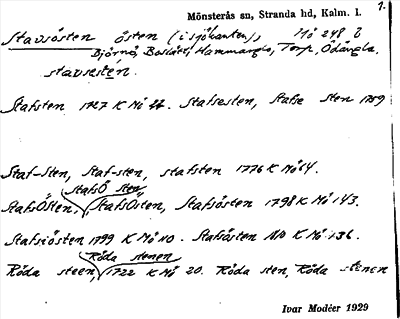 Mönsterås sn, Stranda hd, Kalm. l. 1.
Stavsösten östen (i sjökanten), Mö 248 b
Björnö, Boslätt, Hammargla, Torp, Ödängla.
stavsestén.
Stafsten 1727 K Mö 22. Stafsesten, Stafse sten 1759
Staf-Sten, Staf-sten, stafsten 1776 K Mö 64.
StafsÖ sten
StafsÖsten, StafsÖsten, Stafsösten 1798 K Mö 143.
Stafsiösten 1799 K Mö 110. Stafsösten 1810 K Mö 136.
Röda stenen
Röda steen, 1722 K Mö 20. Röda sten, Röda stenen
Ivar Modéer 1929